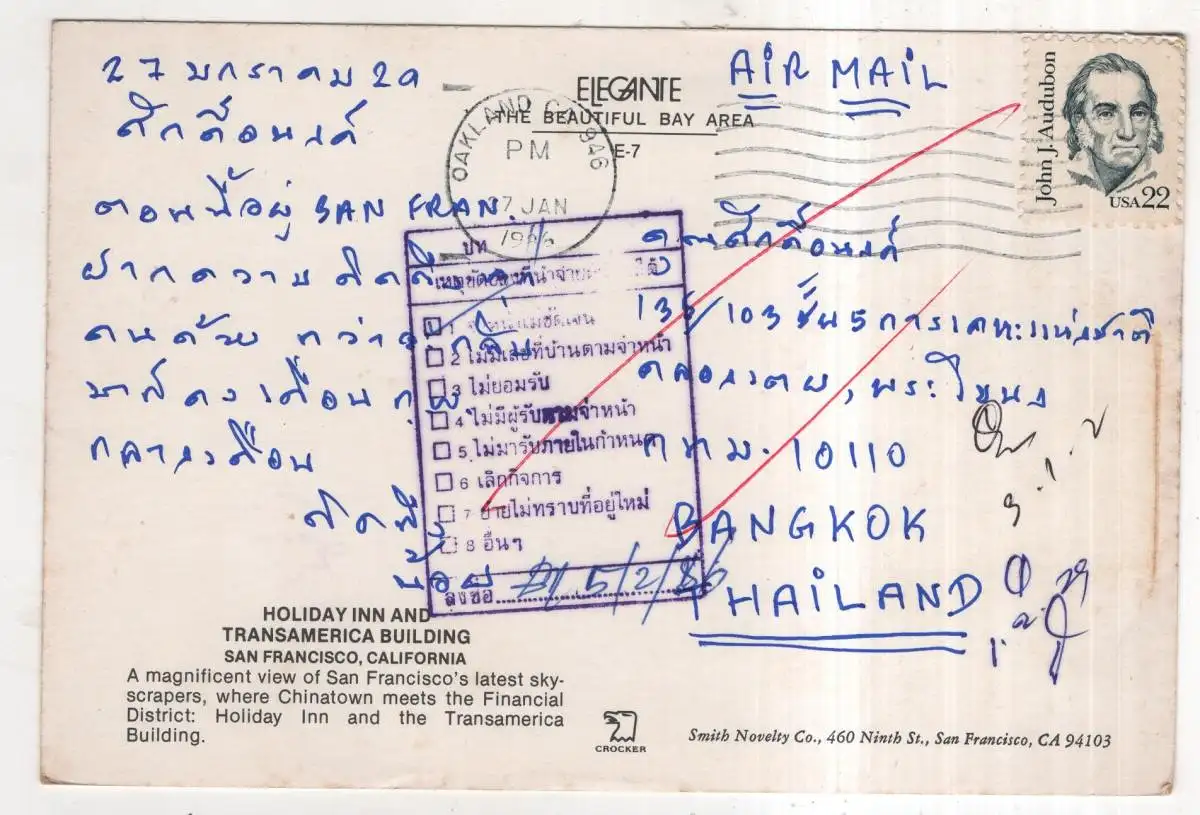 27 มกราคม 29
ศักดิ์อนงค์
ตอนนี้อยู่ SAN FRAN.
ฝากความคิดถึง
คนด้วย กว่าจะกลับ
เดือน
กลางเดือน
คิดถึง
น้อย
ELEGANTE
THE BEAUTIFUL BAY AREA
E-7
OAKLAND CA 946
PM
7 JAN
1986
AIR MAIL
John J. Audubon
USA 22
คุณศักดิ์อนงค์
135/103 ชั้น 5 การเคหะแห่งชาติ
คลองเตย, พระโขนง
กทม. 10110
BANGKOK
THAILAND
ปท
เหตุขัดข้องที่นำจ่าย
1 จ่าหน้าไม่ชัดเจน
2 ไม่มีเลขที่บ้านตามจ่าหน้า
3 ไม่ยอมรับ
4 ไม่มีผู้รับตามจ่าหน้า
5 ไม่มารับภายในกำหนด
6 เลิกกิจการ
7 ย้ายไม่ทราบที่อยู่ใหม่
8 อื่นๆ
ลงชื่อ 5/2/86
HOLIDAY INN AND
TRANSAMERICA BUILDING
SAN FRANCISCO, CALIFORNIA
A magnificent view of San Francisco's latest sky-
scrapers, where Chinatown meets the Financial
District: Holiday Inn and the Transamerica
Building.
CROCKER
Smith Novelty Co., 460 Ninth St., San Francisco, CA 94103